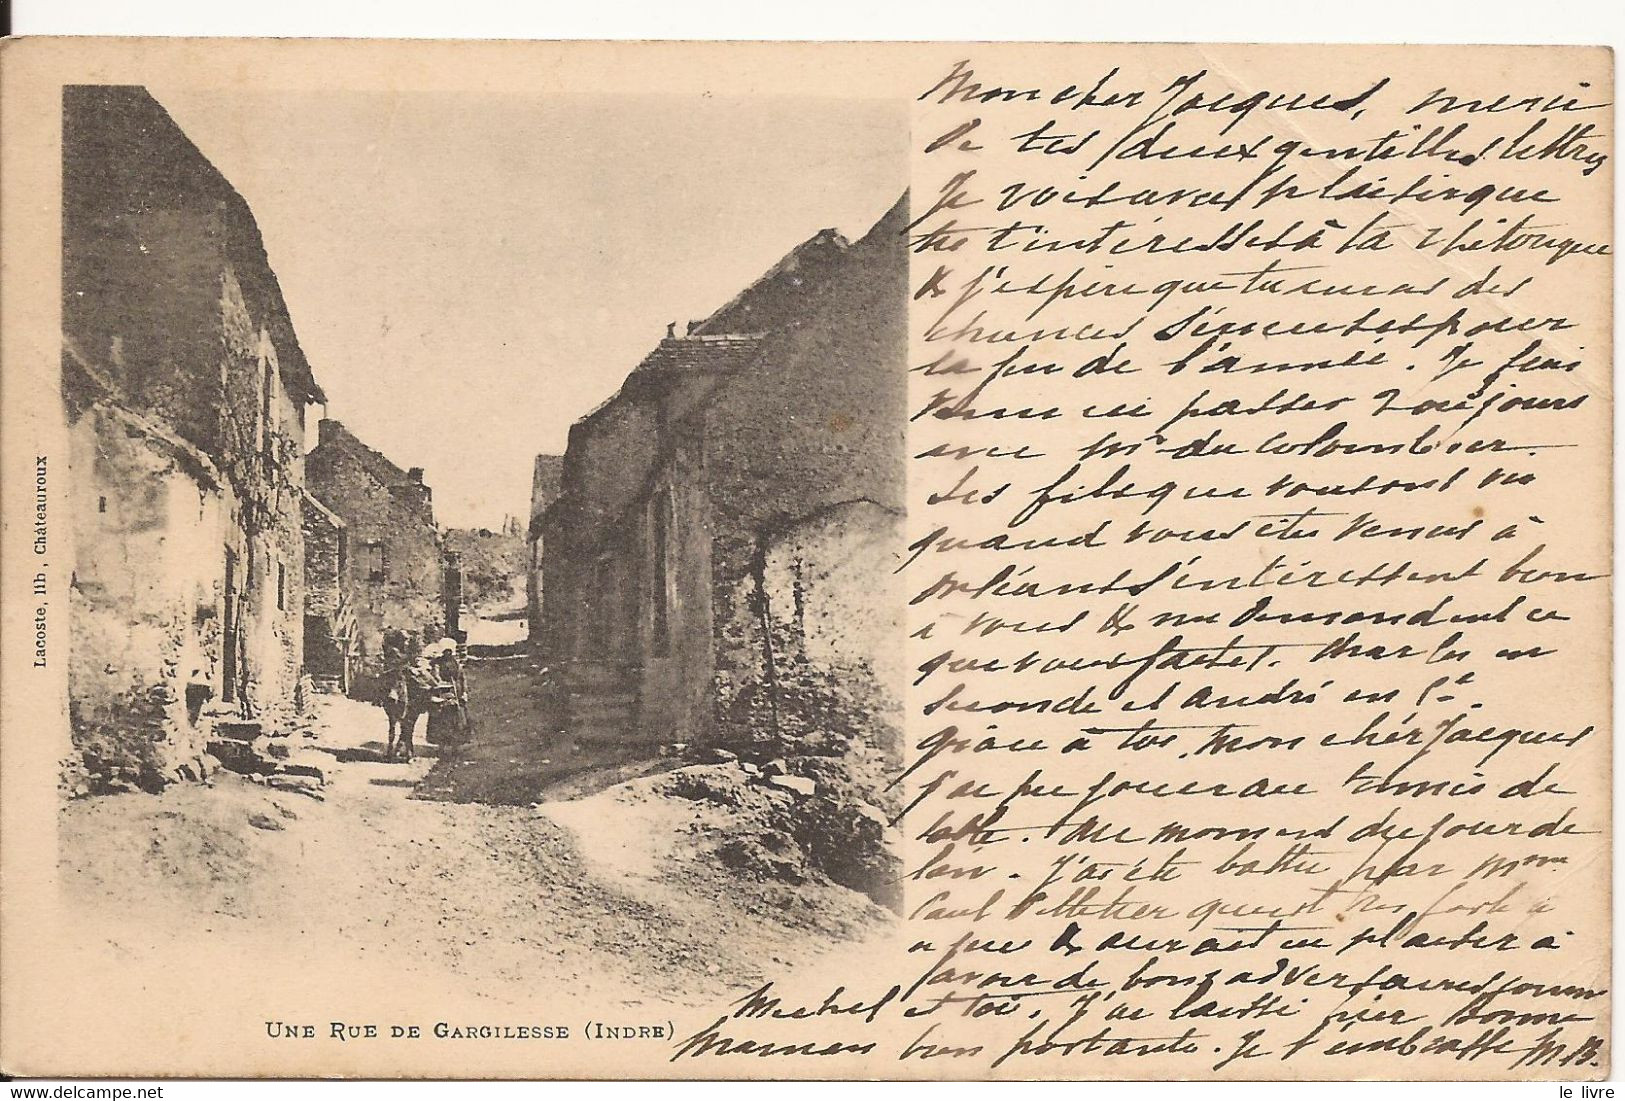 Mon cher Jacques, merci
de tes deux gentilles lettres
Je vois avec plaisir que
tu t'intéresses à la rhétorique
& j'espère que tu auras des
chances sérieuses pour
la fin de l'année. Je suis
venu ici passer 2 ou 3 jours
avec Mr du Colombier.
Ses fils que vous avez vu
quand vous êtes venus à
Orléans s'intéressent bien
à vous & me demandent ce
que vous faites. Charles en
seconde et André en
grâce à toi, mon cher Jacques
j'ai pu jouer au tennis de
table. au moment du jour de
l'an. J'ai été battu par Mme
Paul Pelletier qui est très forte à
ce jeu & aurait eu plaisir à
avoir de bons adversaires comme
Michel et toi. J'ai laissé hier Bonne
Maman bien portante. Je t'embrasse M.B.
Lacoste, lib, Châteauroux
UNE RUE DE GARGILESSE (INDRE)
le livre